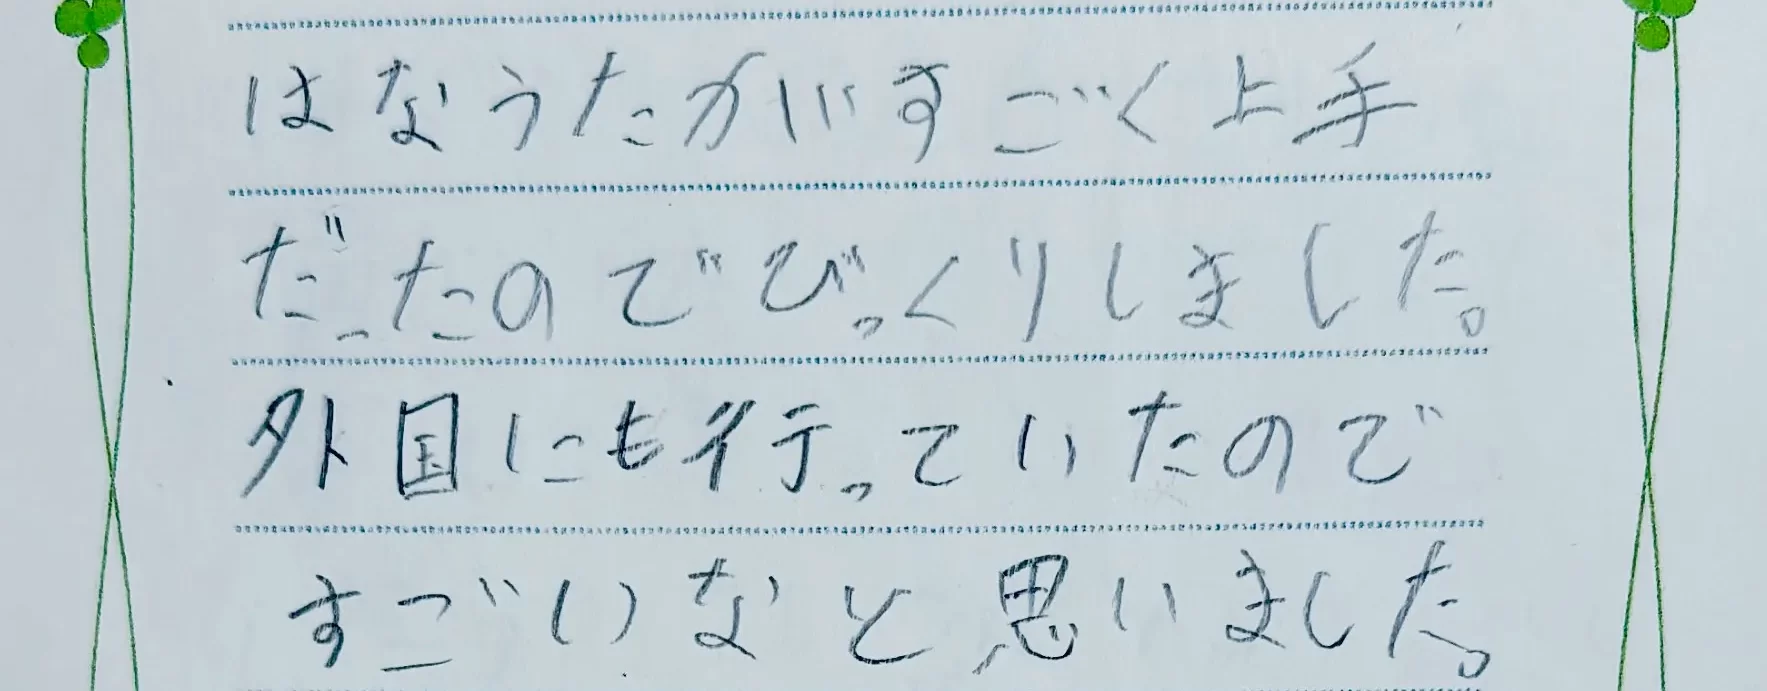 はなうたがすごく上手
だったのでびっくりしました。
外国にも行っていたので
すごいなと思いました。